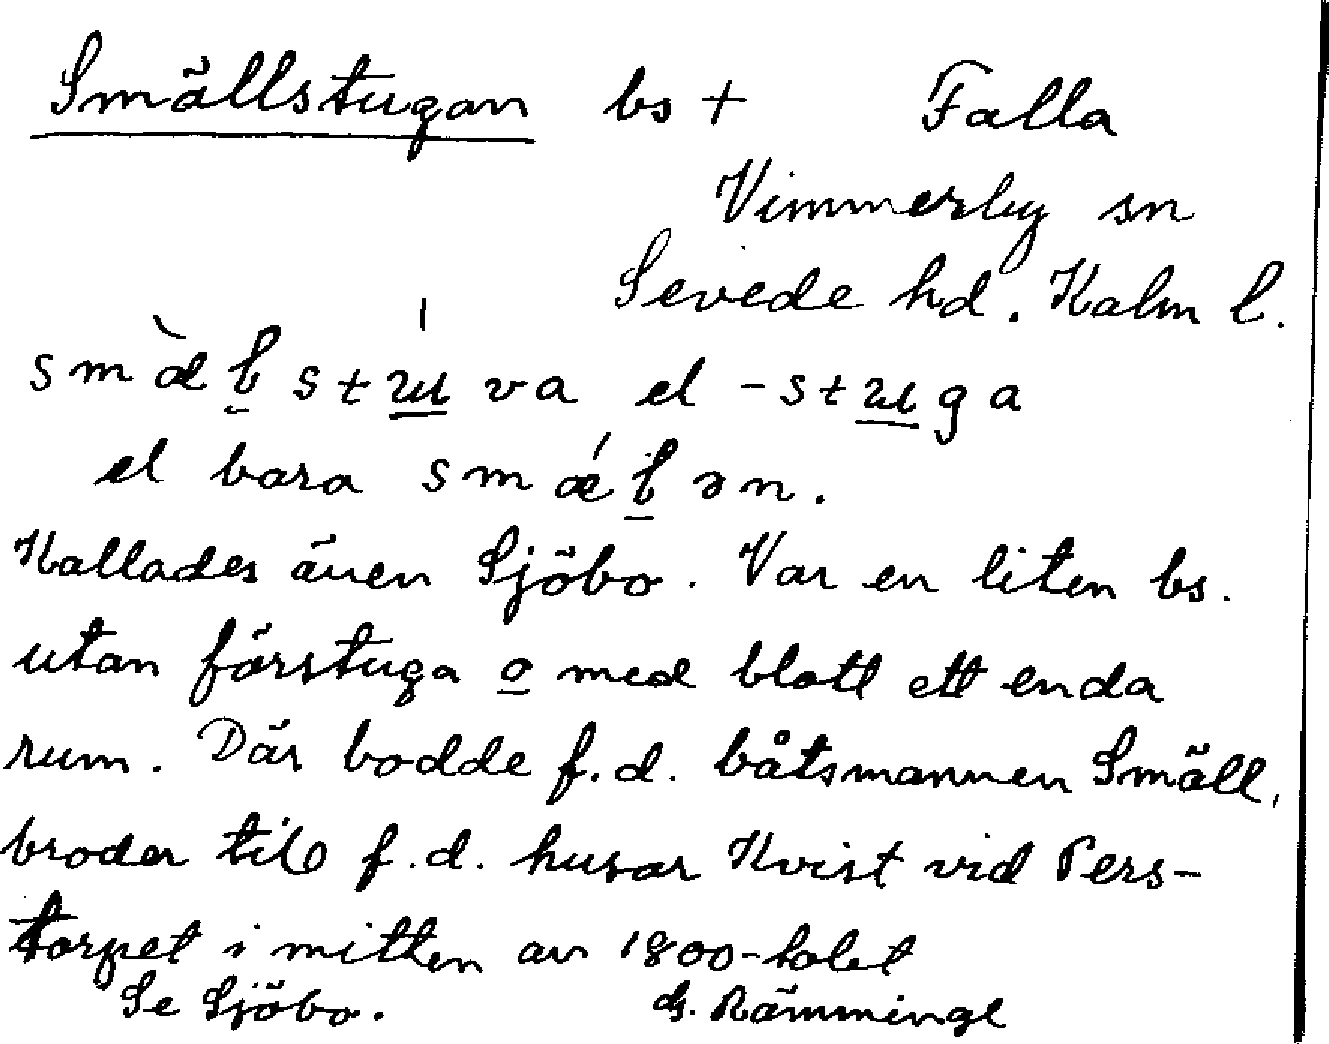 Smällstugan bs + Falla
Vimmerby sn
Sevede hd. Kalm l.
smæ̀l̠stu̠va el -stu̠ga
el bara smǽl̠ən.
Kallades även Sjöbo. Var en liten bs.
utan förstuga o med blott ett enda
rum. Där bodde f.d. båtsmannen Smäll,
broder till f.d. husar Kvist vid Pers-
torpet i mitten av 1800-talet
Se Sjöbo. G. Rämmingl